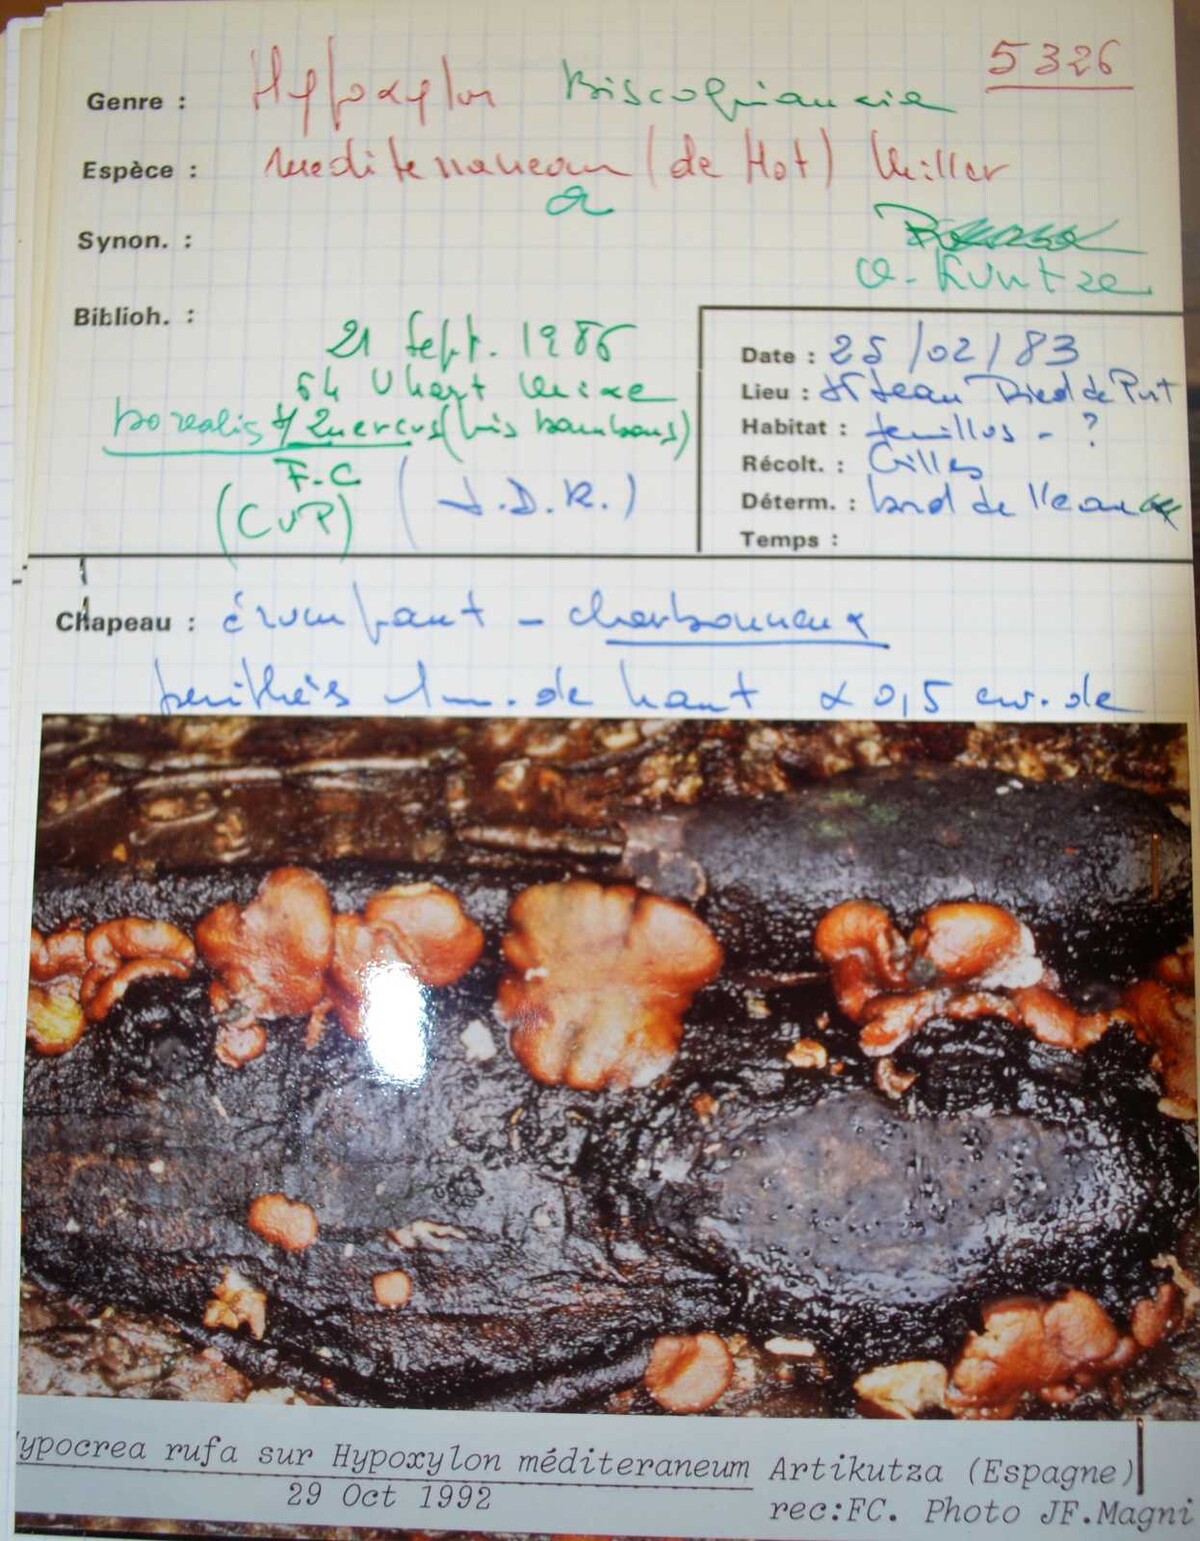 5326
Genre : Hypoxylon Biscogniauxia
Espèce : mediterraneum (de Not) Miller
a
Synon. :
O. Kuntze
Biblioh. :
21 Sept. 1986
64 Uhart Mixe
s/ Quercus
F.C
(CVP) (J.D.R.)
Date : 25/02/83
Lieu : St Jean Pied de Port
Habitat : feuillus - ?
Récolt. : Gilles
Déterm. : bord de l'eau
Temps :
Chapeau : érumpant - charbonneux
périthès 1 m. de haut x 0,5 cm. de
ypocrea rufa sur Hypoxylon méditeraneum Artikutza (Espagne)
29 Oct 1992
rec:FC. Photo JF.Magni